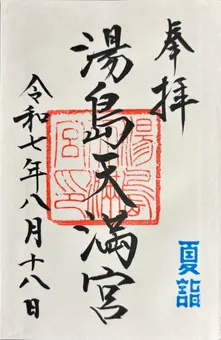 奉拝
夏詣
湯島天満宮
令和七年八月十八日